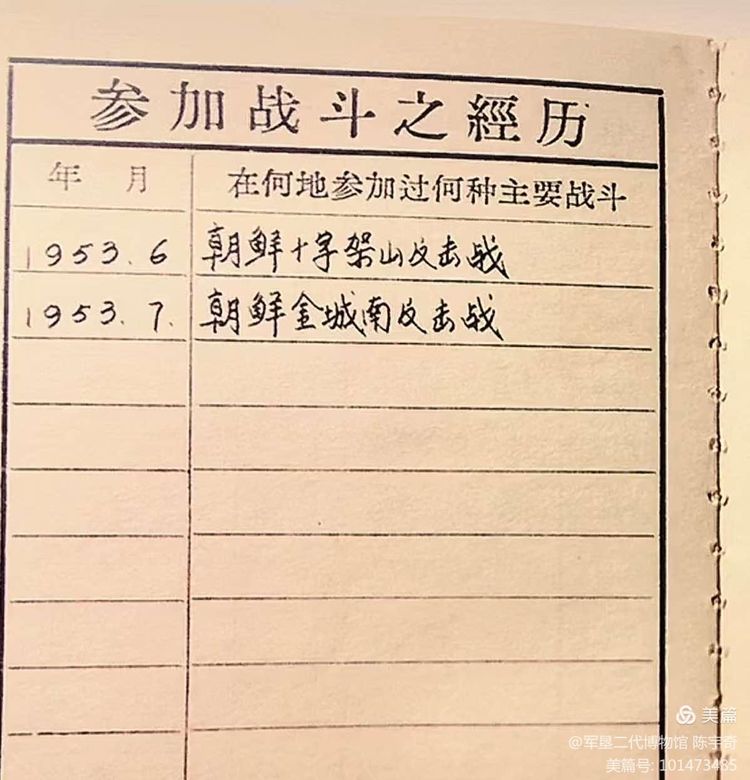 参加战斗之經历
年 月 在何地参加过何种主要战斗
1953.6 朝鲜十字架山反击战
1953.7. 朝鲜金城南反击战
美篇
@军垦二代博物馆 陈宇奇
美篇号: 101473485